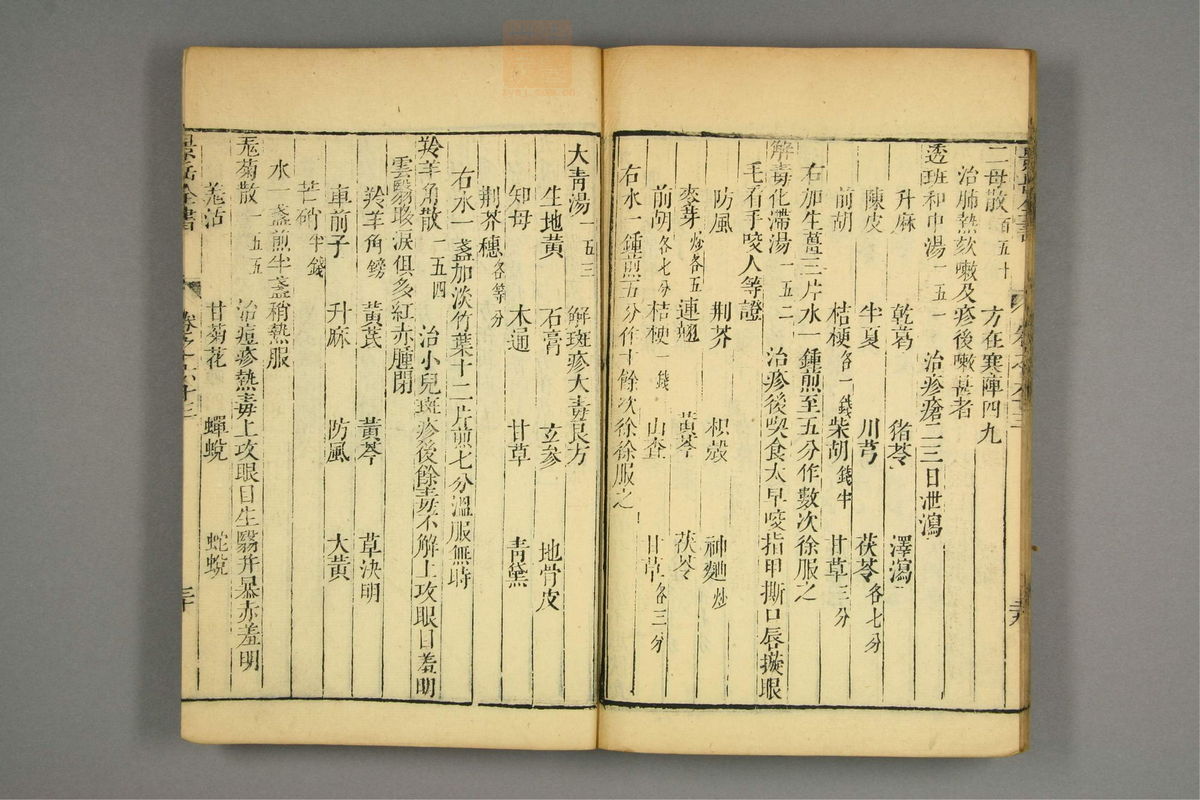 二母散 一百五十 方在寒陣四九
治肺熱欬嗽及疹後嗽甚者
透斑和中湯 一五一 治疹瘡二三日泄瀉
升麻 乾葛 猪苓 澤瀉
陳皮 半夏 川芎 茯苓各七分
前胡 桔梗各一錢 柴胡錢半 甘草三分
右加生薑三片水一鍾煎至五分作數次徐服之
解毒化滯湯 一五二 治疹後喫食太早咬指甲撕口唇撏眼
毛看手咬人等證
防風 荆芥 枳殼 神麯炒
麥芽炒各五 連翹 黃芩 茯苓
前胡各七分 桔梗一錢 山查 甘草各三分
右水一鍾煎五分作十餘次徐徐服之
大青湯 一五三 解斑疹大毒良方
生地黃 石膏 玄參 地骨皮
知母 木通 甘草 青黛
荆芥穗各等分
右水一盞加淡竹葉十二片煎七分溫服無時
羚羊角散 一五四 治小兒斑疹後餘毒不解上攻眼目羞明
雲翳眵淚俱多紅赤腫閉
羚羊角鎊 黃芪 黃芩 草決明
車前子 升麻 防風 大黃
芒硝半錢
水一盞煎半盞稍熱服
羗菊散 一五五 治痘疹熱毒上攻眼目生翳并暴赤羞明
羗活 甘菊花 蟬蛻 蛇蛻
景岳全書 卷之六十三 三十